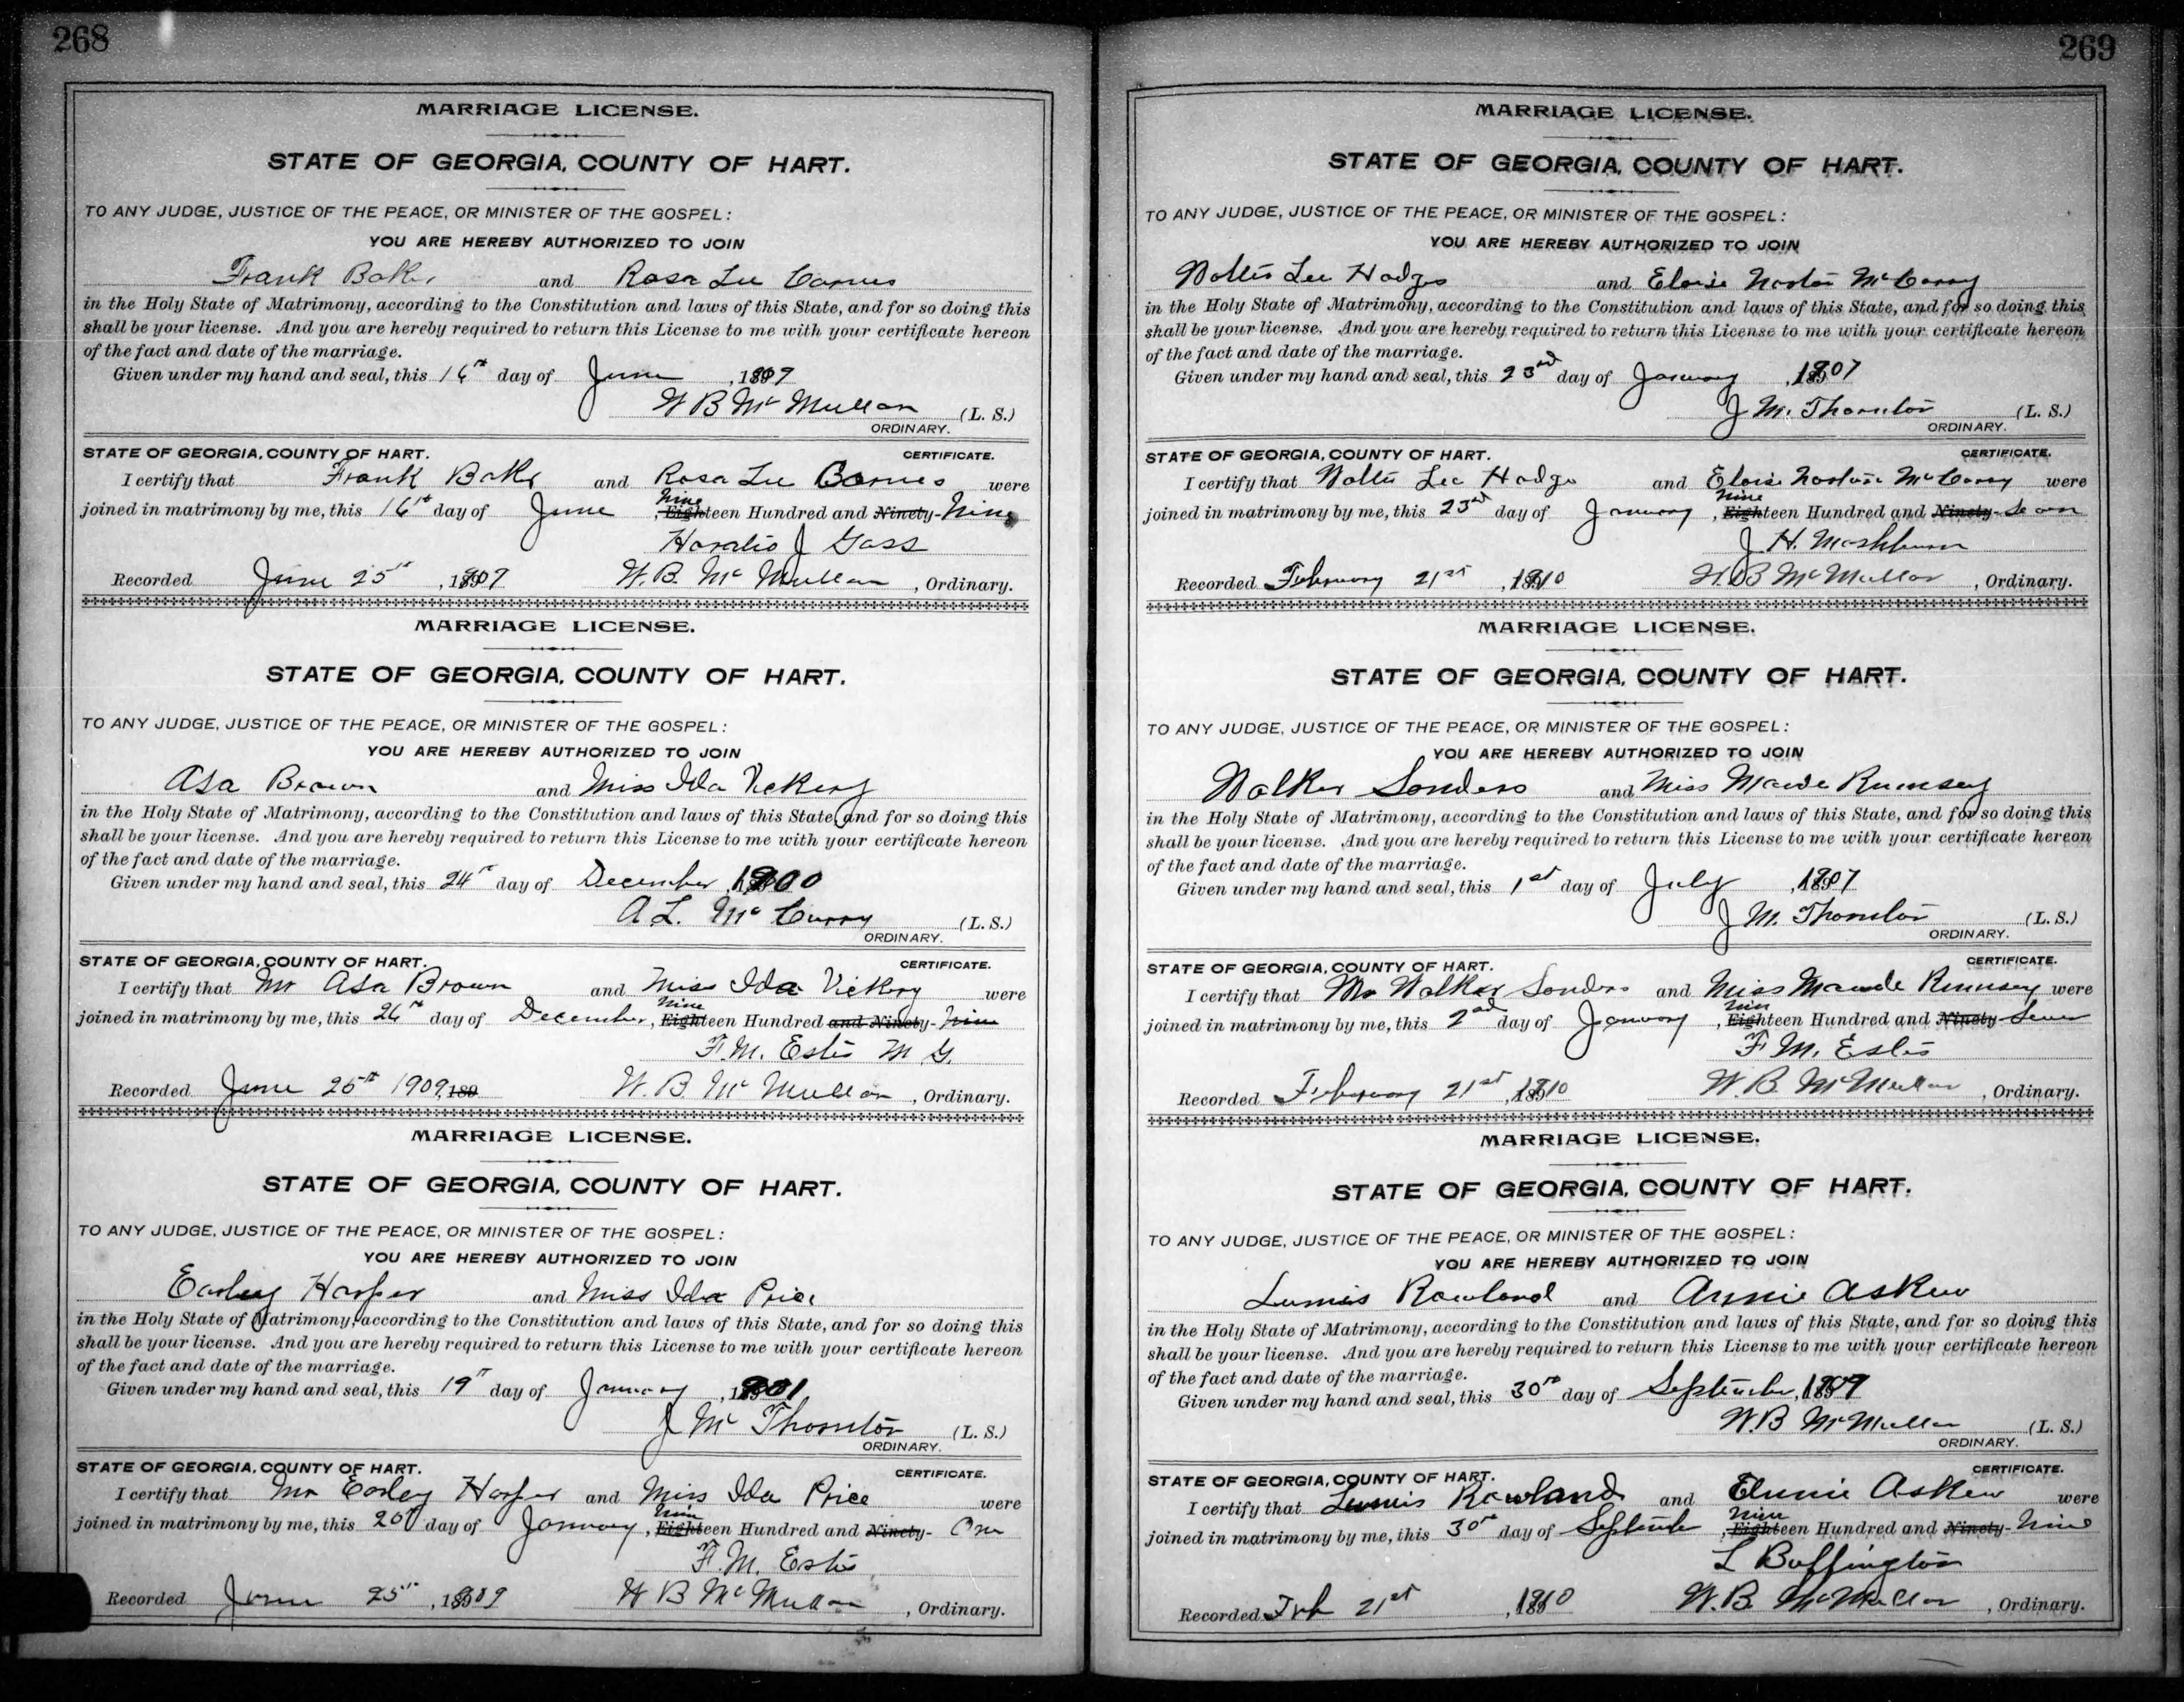 268
MARRIAGE LICENSE.
STATE OF GEORGIA, COUNTY OF HART.
TO ANY JUDGE, JUSTICE OF THE PEACE, OR MINISTER OF THE GOSPEL:
YOU ARE HEREBY AUTHORIZED TO JOIN
Frank Baker and Rosa Lee
in the Holy State of Matrimony, according to the Constitution and laws of this State, and for so doing this
shall be your license. And you are hereby required to return this License to me with your certificate hereon
of the fact and date of the marriage.
Given under my hand and seal, this 16th day of June, 1909
W B McMullan (L. S.)
ORDINARY.
STATE OF GEORGIA, COUNTY OF HART. CERTIFICATE.
I certify that Frank Baker and Rosa Lee were
joined in matrimony by me, this 16th day of June, Nineteen Hundred and Ninety-Nine
Horatio J Gass
Recorded June 25th, 1909 W. B. McMullan, Ordinary.
MARRIAGE LICENSE.
STATE OF GEORGIA, COUNTY OF HART.
TO ANY JUDGE, JUSTICE OF THE PEACE, OR MINISTER OF THE GOSPEL:
YOU ARE HEREBY AUTHORIZED TO JOIN
Asa Brown and Miss Ida Vickery
in the Holy State of Matrimony, according to the Constitution and laws of this State, and for so doing this
shall be your license. And you are hereby required to return this License to me with your certificate hereon
of the fact and date of the marriage.
Given under my hand and seal, this 24th day of December, 1900
A. L. McCurry (L. S.)
ORDINARY.
STATE OF GEORGIA, COUNTY OF HART. CERTIFICATE.
I certify that Mr Asa Brown and Miss Ida Vickery were
joined in matrimony by me, this 26th day of December, Nineteen Hundred and Ninety-Nine
F. M. Estes M G.
Recorded June 25th 1909, 189 W. B. McMullan, Ordinary.
MARRIAGE LICENSE.
STATE OF GEORGIA, COUNTY OF HART.
TO ANY JUDGE, JUSTICE OF THE PEACE, OR MINISTER OF THE GOSPEL:
YOU ARE HEREBY AUTHORIZED TO JOIN
Earley Harper and Miss Ida Price
in the Holy State of Matrimony, according to the Constitution and laws of this State, and for so doing this
shall be your license. And you are hereby required to return this License to me with your certificate hereon
of the fact and date of the marriage.
Given under my hand and seal, this 19th day of January, 1901
J M Thornton (L. S.)
ORDINARY.
STATE OF GEORGIA, COUNTY OF HART. CERTIFICATE.
I certify that Mr Earley Harper and Miss Ida Price were
joined in matrimony by me, this 20th day of January, Nineteen Hundred and Ninety-One
F. M. Estes
Recorded June 25th, 1909 W B McMullan, Ordinary.
269
MARRIAGE LICENSE.
STATE OF GEORGIA, COUNTY OF HART.
TO ANY JUDGE, JUSTICE OF THE PEACE, OR MINISTER OF THE GOSPEL:
YOU ARE HEREBY AUTHORIZED TO JOIN
Lee Hodges and Eloise McCurry
in the Holy State of Matrimony, according to the Constitution and laws of this State, and for so doing this
shall be your license. And you are hereby required to return this License to me with your certificate hereon
of the fact and date of the marriage.
Given under my hand and seal, this 23rd day of January, 1907
J M. Thornton (L. S.)
ORDINARY.
STATE OF GEORGIA, COUNTY OF HART. CERTIFICATE.
I certify that Lee Hodge and Eloise McCurry were
joined in matrimony by me, this 23rd day of January, Nineteen Hundred and Ninety-Seven
J. H. Mashburn
Recorded February 21st, 1910 W. B McMullan, Ordinary.
MARRIAGE LICENSE.
STATE OF GEORGIA, COUNTY OF HART.
TO ANY JUDGE, JUSTICE OF THE PEACE, OR MINISTER OF THE GOSPEL:
YOU ARE HEREBY AUTHORIZED TO JOIN
Walker Sanders and Miss Maude Rumsey
in the Holy State of Matrimony, according to the Constitution and laws of this State, and for so doing this
shall be your license. And you are hereby required to return this License to me with your certificate hereon
of the fact and date of the marriage.
Given under my hand and seal, this 1st day of July, 1907
J M. Thornton (L. S.)
ORDINARY.
STATE OF GEORGIA, COUNTY OF HART. CERTIFICATE.
I certify that Mr Walker Sanders and Miss Maude Rumsey were
joined in matrimony by me, this 2nd day of January, Nineteen Hundred and Ninety-Seven
F M. Estes
Recorded February 21st, 1910 W. B. McMullan, Ordinary.
MARRIAGE LICENSE.
STATE OF GEORGIA, COUNTY OF HART.
TO ANY JUDGE, JUSTICE OF THE PEACE, OR MINISTER OF THE GOSPEL:
YOU ARE HEREBY AUTHORIZED TO JOIN
Lumis Rowland and Annie Askew
in the Holy State of Matrimony, according to the Constitution and laws of this State, and for so doing this
shall be your license. And you are hereby required to return this License to me with your certificate hereon
of the fact and date of the marriage.
Given under my hand and seal, this 30th day of September, 1909
W. B McMullan (L. S.)
ORDINARY.
STATE OF GEORGIA, COUNTY OF HART. CERTIFICATE.
I certify that Lumis Rowland and Askew were
joined in matrimony by me, this 30th day of September, Nineteen Hundred and Ninety-Nine
L Buffington
Recorded Feb 21st, 1910 W. B. McMullan, Ordinary.